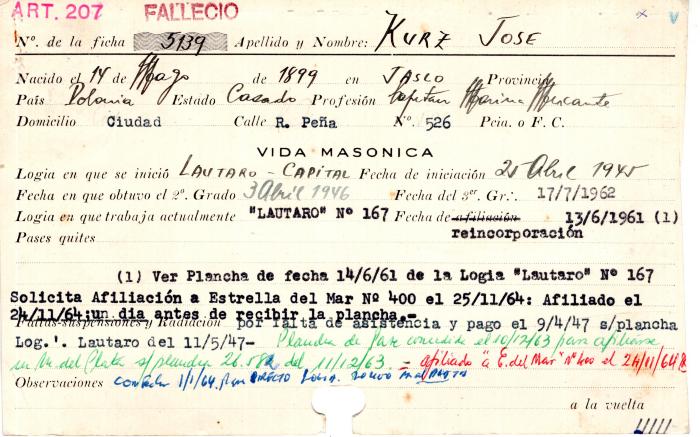 ART. 207 FALLECIO
Nº. de la ficha 5139 Apellido y Nombre: KURZ JOSE
Nacido el 14 de Mayo de 1899 en JASLO Provincia
País Polonia Estado Casado Profesión Capitan Marina Mercante
Domicilio Ciudad Calle R. Peña Nº. 526 Pcia. o F. C.
VIDA MASONICA
Logia en que se inició LAUTARO - CAPITAL Fecha de iniciación 25 Abril 1945
Fecha en que obtuvo el 2º. Grado 3 Abril 1946 Fecha del 3er. Gr.·. 17/7/1962
Logia en que trabaja actualmente "LAUTARO" Nº 167 Fecha de afiliación 13/6/1961 (1)
Pases quites reincorporación
(1) Ver Plancha de fecha 14/6/61 de la Logia "Lautaro" Nº 167
Solicita Afiliación a Estrella del Mar Nº 400 el 25/11/64: Afiliado el
24/11/64:un dia antes de recibir la plancha.-
Faltas-suspensiones y Radiación por falta de asistencia y pago el 9/4/47 s/plancha
Log.'. Lautaro del 11/5/47- Plancha de Pase concedida el 10/12/63 para afiliarse
en M. del Plata s/plancha 26.582 del 11/12/63. = Afiliado "a E. del Mar" Nº 400 el 24/11/64
Observaciones 1/1/64. DIRECTO LOGIA.
a la vuelta